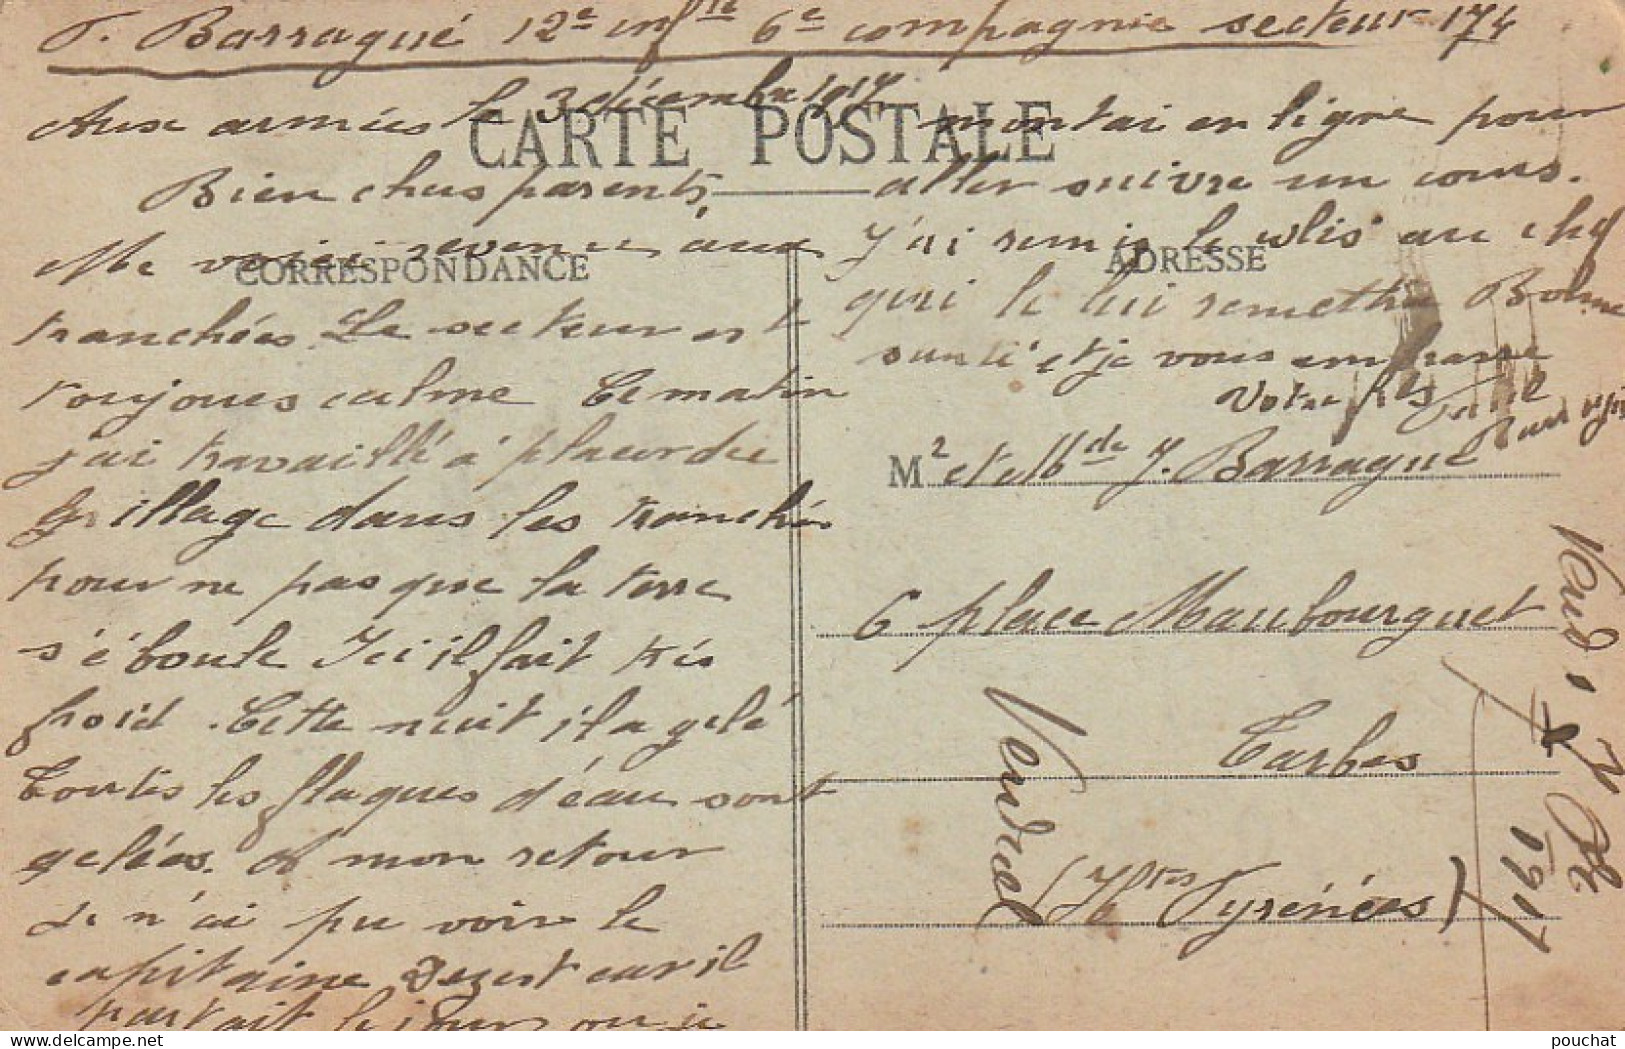 Barragué 12e infrie 6e compagnie secteur 174
Aux armées le 3 décembre 1917
CARTE POSTALE
Bien chers parents,
Me voici revenu aux
CORRESPONDANCE
tranchées. Le secteur est
toujours calme Ce matin
j'ai travaillé à placer du
grillage dans les tranchées
pour ne pas que la terre
s'éboule Ici il fait très
froid. Cette nuit il a gelé
Toutes les flaques d'eau sont
gelées. A mon retour
je n'ai pu voir le
capitaine Dezest car il
partait le jour ou je
montai en ligne pour
aller suivre un cours.
J'ai remis le colis au chef
ADRESSE
qui le lui remettra Bonne
santé et je vous embrasse
Votre fils
Barragué
Mr et Mde J. Barragué
6 place Maubourguet
Tarbes
(Htes Pyrénées)
Vendred
Vend. 7 Xe
1917
pouchat